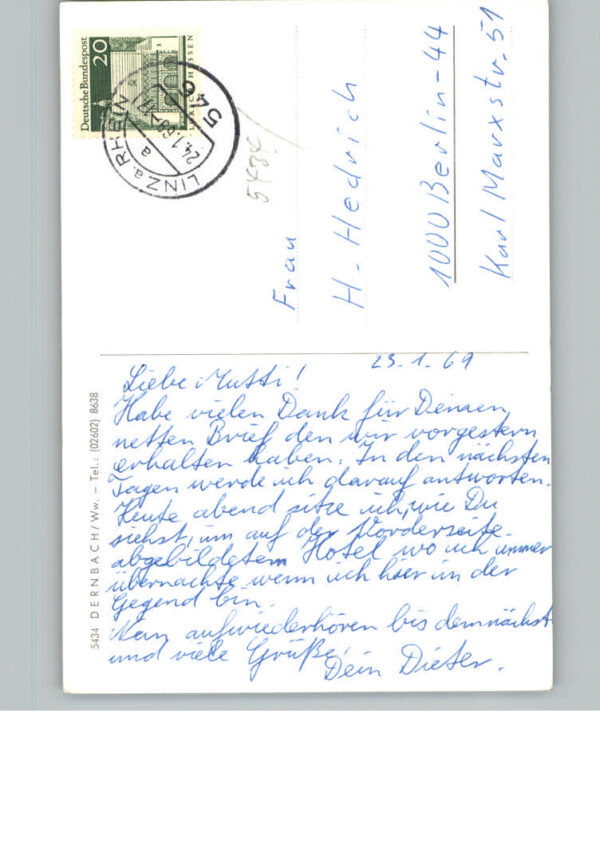 Deutsche Bundespost
20
LORSCH/HESSEN
LINZ a. RHEIN
a
24.1.69
546
5434
Frau
H. Hedrich
1000 Berlin-44
Karl Marxstr. 51
23.1.69
Liebe Mutti!
Habe vielen Dank für Deinen
netten Brief den wir vorgestern
erhalten haben. In den nächsten
Tagen werde ich darauf antworten.
Heute abend sitze ich, wie Du
siehst, im auf der Vorderseite
abgebildetem Hotel wo ich immer
übernachte wenn ich hier in der
Gegend bin.
Nun aufwiederhören bis demnächst
und viele Grüße,
Dein Dieter.
5434 DERNBACH/Ww. – Tel.: (02602) 8638